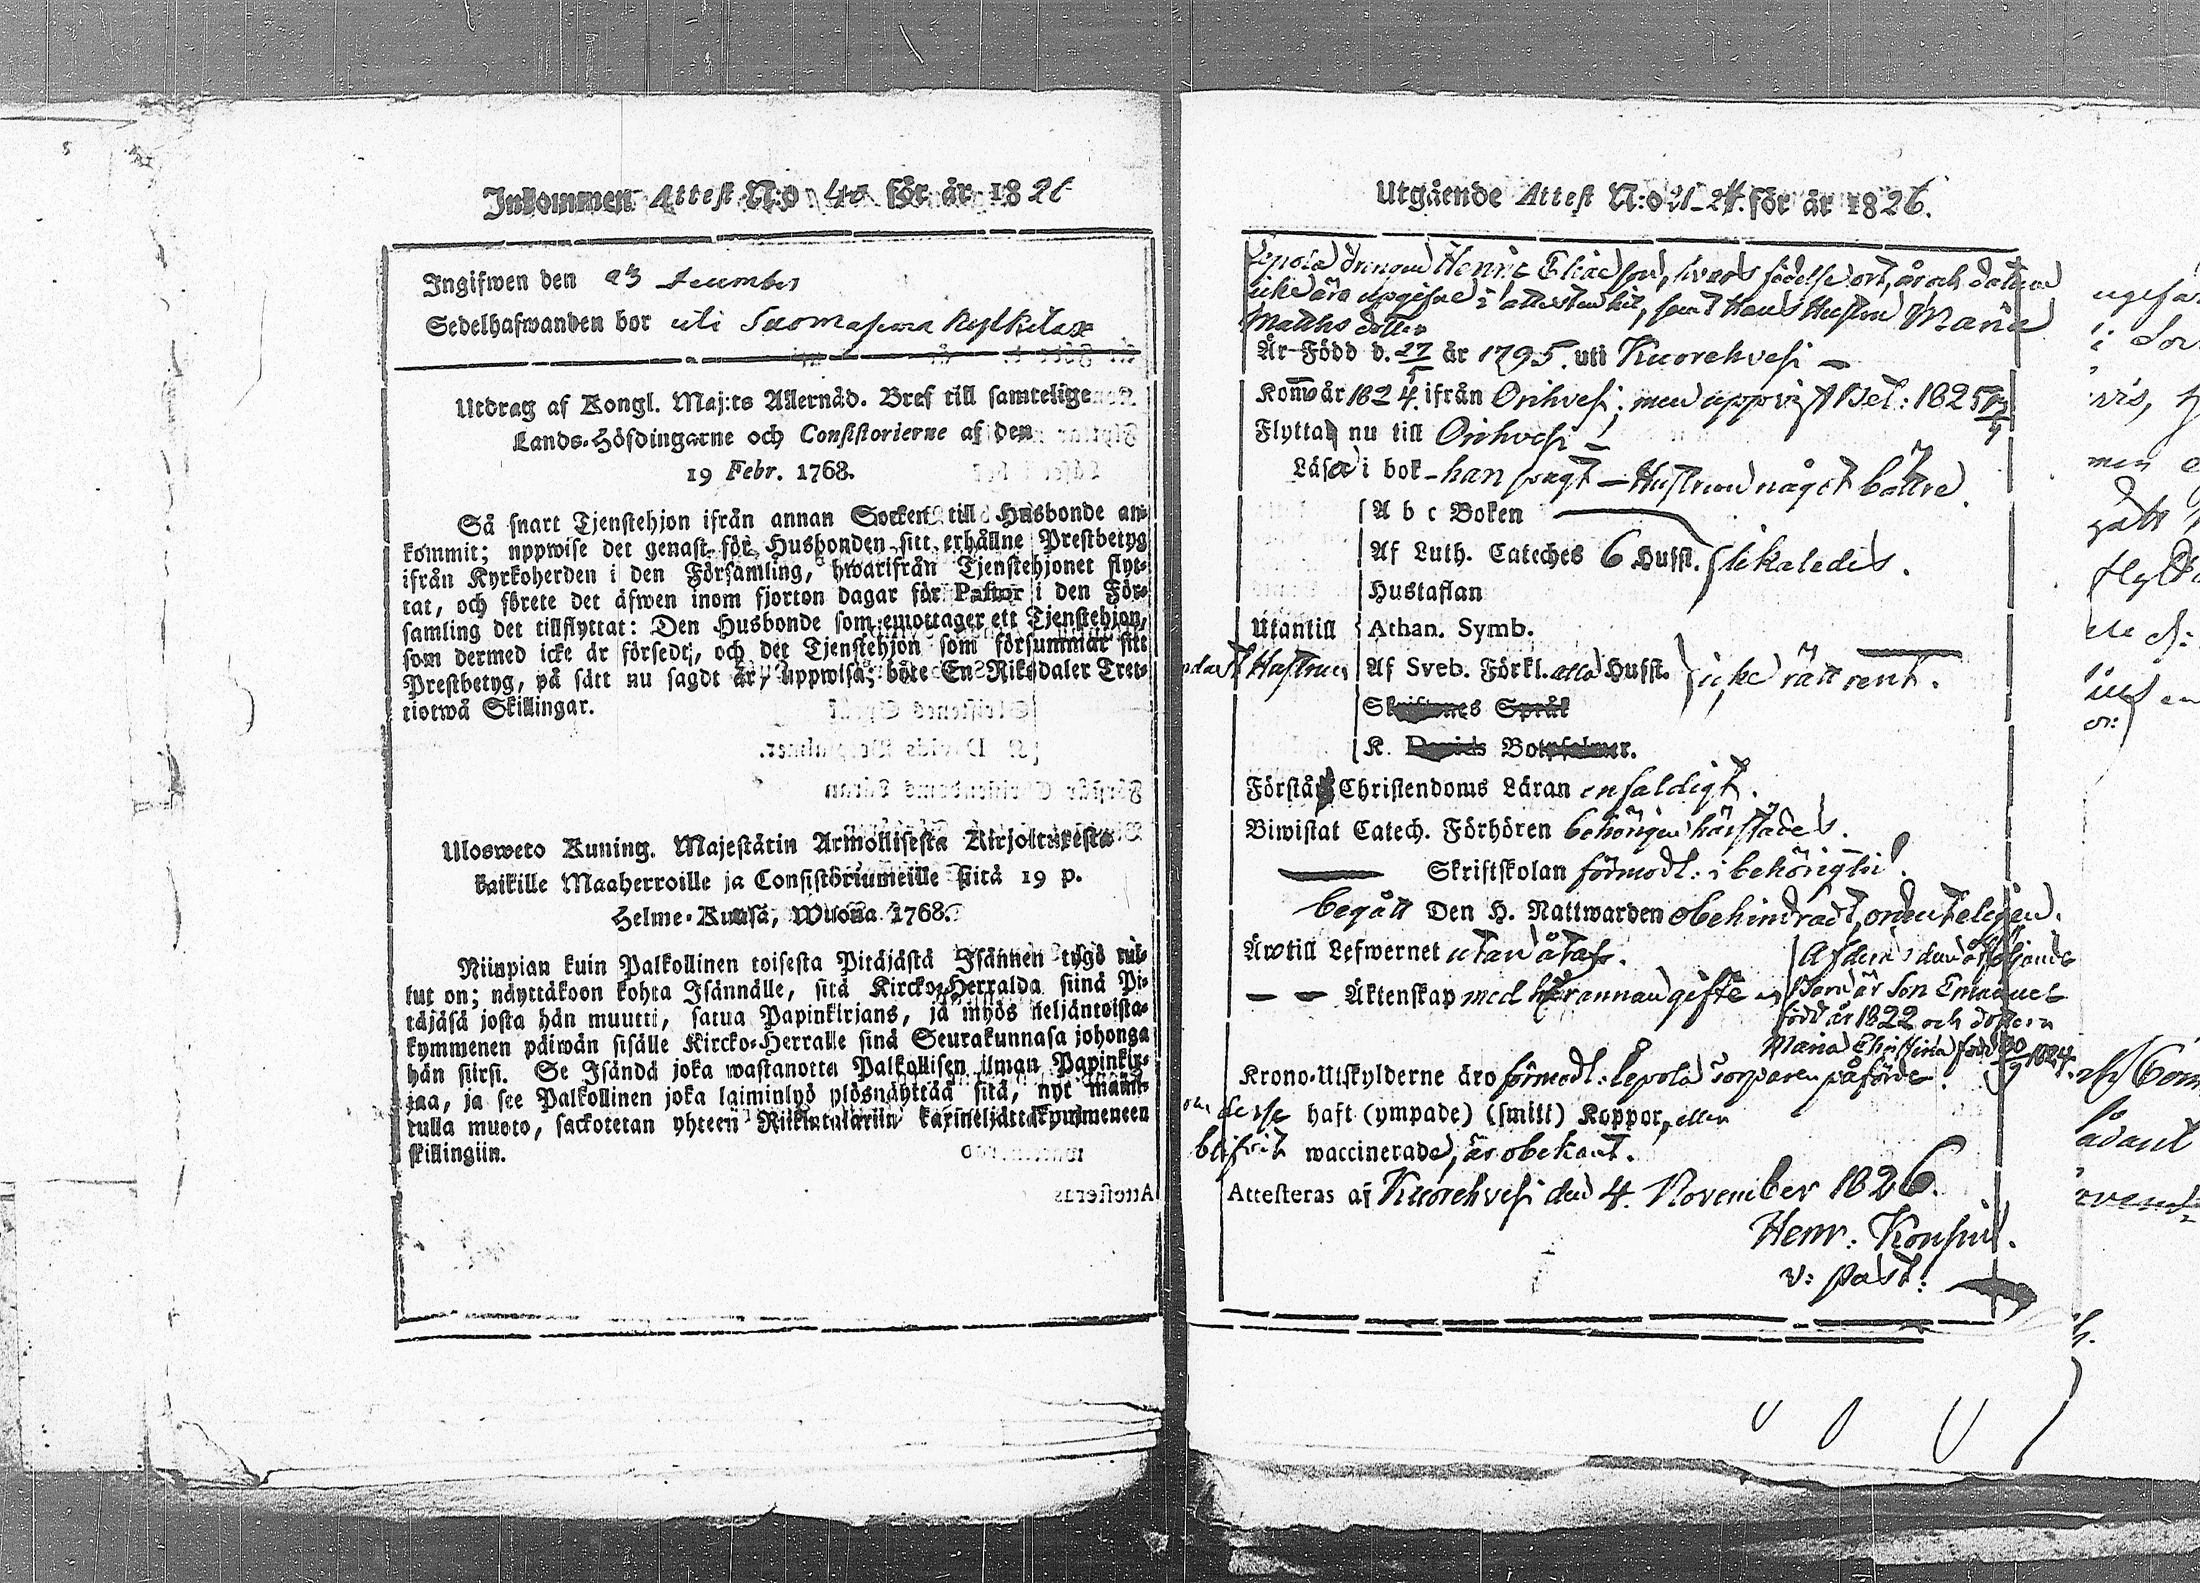 Inkommen Attest N:o 40 för år 1826
Ingifwen den 23 december
Sedelhafwanden bor uti
Utdrag af Kongl. Maj:ts Allernåd. Bref till samtelige
Lands-Höfdingarne och Consistorierne af den
19 Febr. 1768.
Så snart Tjenstehjon ifrån annan Socken till Husbonde an-
kommit; uppwise det genast för Husbonden sitt erhållne Prestbetyg
ifrån Kyrkoherden i den Församling, hwarifrån Tjenstehjonet flyt-
tat, och förete det äfwen inom fjorton dagar för Pastor i den För-
samling det tillflyttat: Den Husbonde som emottager ett Tjenstehjon,
som dermed icke är försedt, och det Tjenstehjon som försummar sitt
Prestbetyg, på sätt nu sagdt är, uppwisa; böte En Riksdaler Tret-
tiotwå Skillingar.
Ulosweto Kuning. Majestätin Armollisesta Kirjoituxesta
kaikille Maaherroille ja Consistöriumeille sitä 19 p.
Helme-Kuusa, Wuona 1768.
Niinpian kuin Palkollinen toisesta Pitäjästä Isännen tygö tul-
lut on; näyttäkoon kohta Isännälle, sitä Kircko-Herralda siinä Pi-
täjäsä josta hän muutti, saatua Papinkirjans, ja myös neljäntoista-
kymmenen päiwän sisälle Kircko-Herralle sinä Seurakunnasa johonga
hän siirsi. Se Isändä joka wastanotta Palkollisen ilman Papinkir-
jaa, ja see Palkollinen joka laiminlyö ylösnäyttää sitä, nyt mainit-
tulla muoto, sackotetan yhteen Riikintalariin kaxineljättäkymmeneen
skillingiin.
Utgående Attest N:o 21-24. för år 1826.
Lepola drängen Henric Eliæ son, hvars födelse ort, år och datum
icke äro upgifne i attesten hit, samt Hans Hustru Maria
Matths dotter
Är Född d. 17/5 år 1795. uti Kuorehvesi
Kom år 1824. ifrån Orihvesi, men uppvist Bet: 1825
Flytta nu till Orihvesi
Läsa i bok - han swagt - Hustrun något bättre
A b c Boken
Af Luth. Cateches 6 Hufst. likaledes.
Hustaflan
Utantill Athan. Symb.
Hustrun Af Sveb. Förkl. alla Hufst. icke rätt rent.
Skriftenes Språk
K. Davids Botpsalmer.
Förstår Christendoms Läran enfaldigt.
Biwistat Catech. Förhören behörigen härstädes.
Skriftskolan förmodl: i behörig tid.
begått Den H. Nattwarden obehindradt, ordenteligen.
Äwtill Lefwernet utan åtal. Af deras den åtföljande
Äktenskap med hvarannan gifte Barn är Son Emanuel
född år 1822 och dottern
Maria Christina född 30/9 1824.
Krono-Utskylderne äro förmodl: Lepola torparen påförde.
Om desse haft (ympade) (smitt) Koppor, eller
blifvit waccinerade, är obekant.
Attesteras af Kuorehvesi den 4. November 1826.
Henr: Konsin.
v: past: